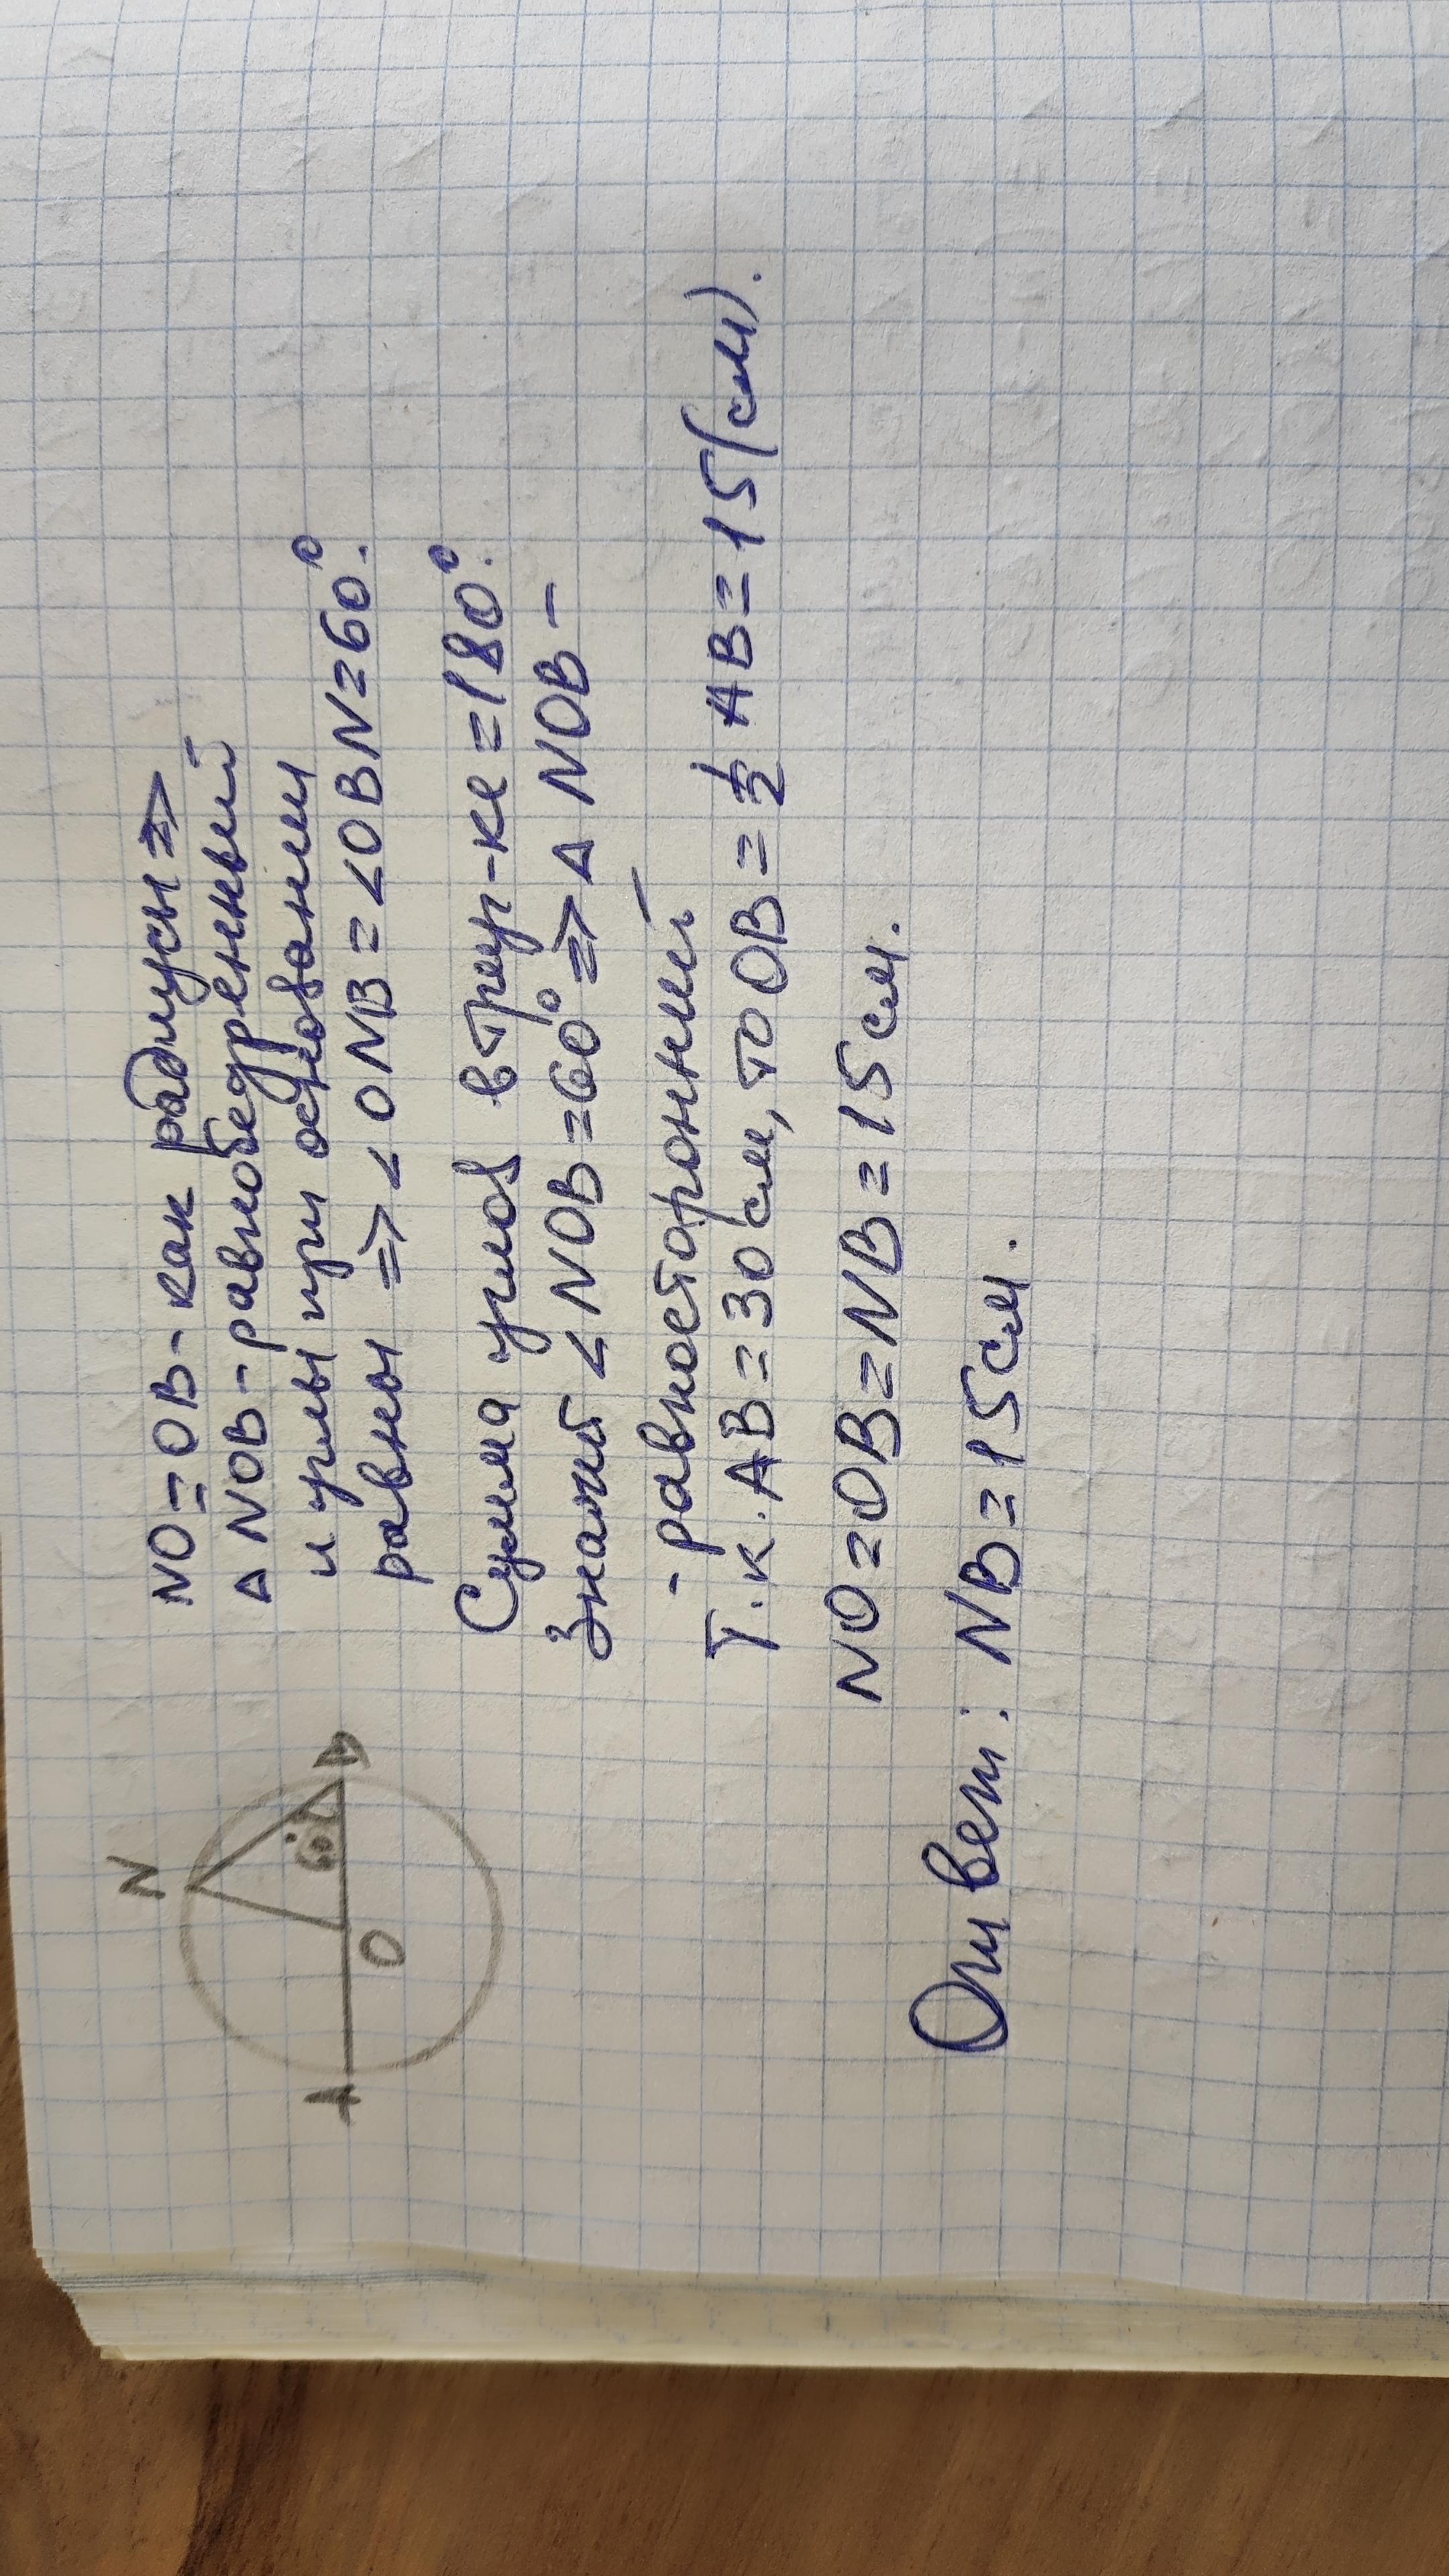 N
60°
A
O
B
NO = OB - как радиусы =>
Δ NOB - равнобедренный
и углы при основании
равны => ∠ONB = ∠OBN = 60°.
Сумма углов в треу-ке = 180°.
Значит ∠NOB = 60° => Δ NOB -
- равносторонний
Т.к. AB = 30 см, то OB = 1/2 AB = 15 (см).
NO = OB = NB = 15 см.
Ответ: NB = 15 см.